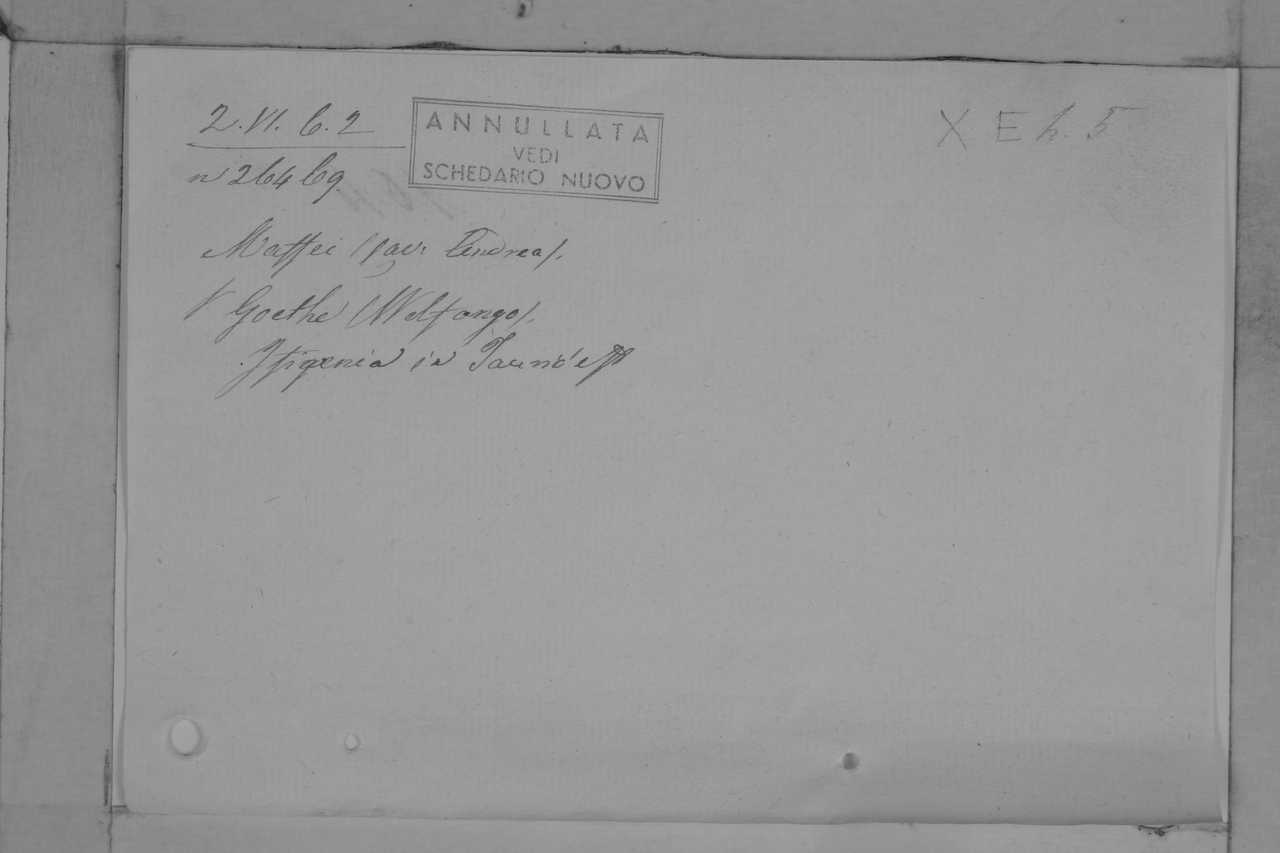 2.VI.6.2
ANNULLATA
VEDI
SCHEDARIO NUOVO
X E h. 5
n 26469.
Maffei (cav. Andrea).
V Goethe (Wolfango).
Ifigenia in